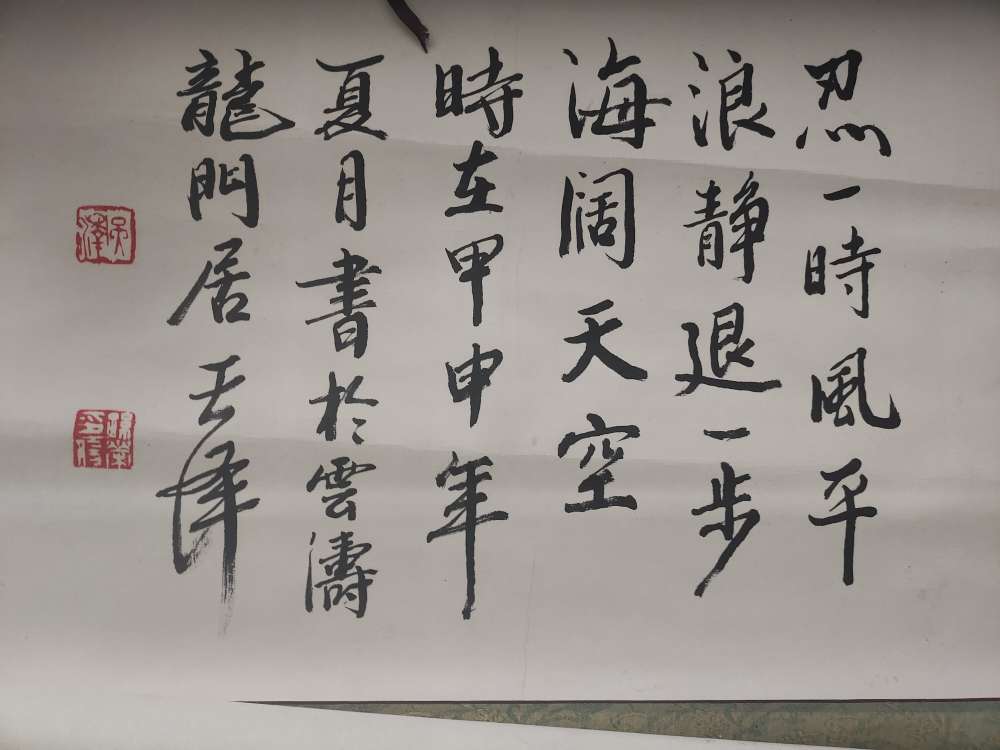 忍一時風平
浪靜退一步
海阔天空
時在甲申年
夏月書於雲濤
龍門居